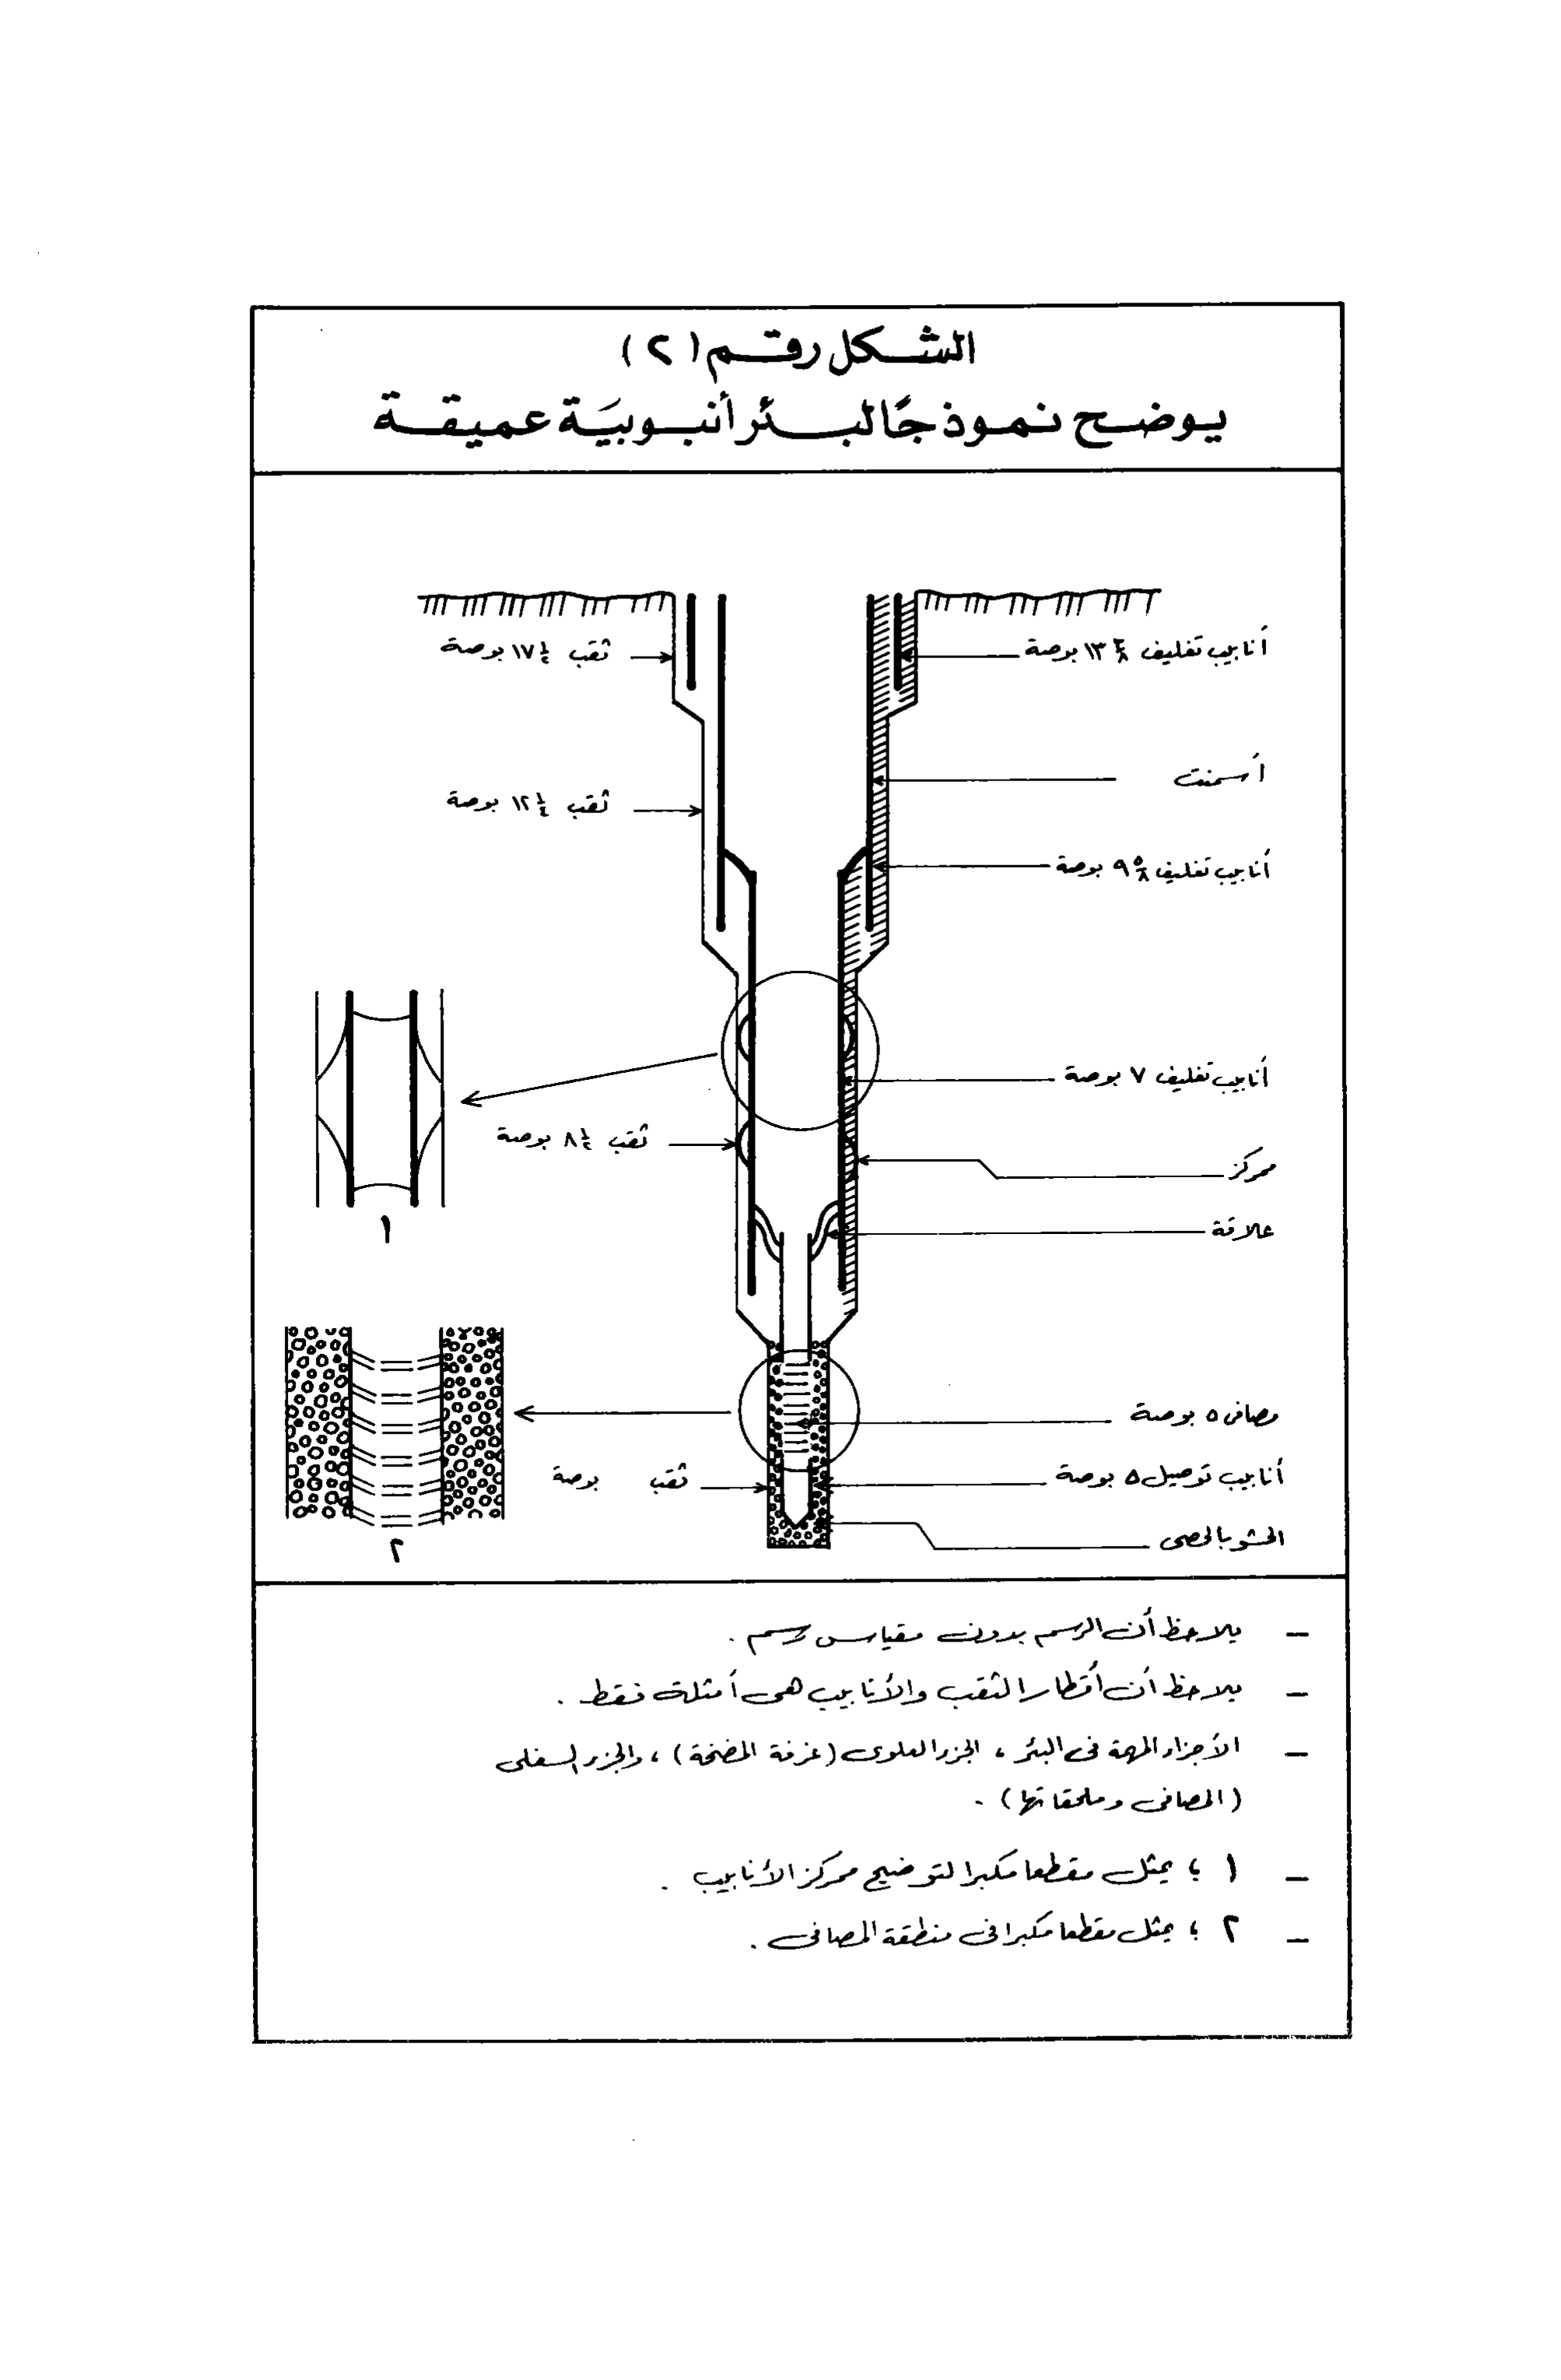 الشكل رقم (٢)
يوضح نموذجًا لبئر أنبوبيَة عميقة
أنابيب تغليف ١٣ ٣/٨ بوصة
ثقب ١٧ ١/٤ بوصة
أسمنت
ثقب ١٢ ١/٤ بوصة
أنابيب تغليف ٩ ٥/٨ بوصة
أنابيب تغليف ٧ بوصة
ثقب ٨ ١/٢ بوصة
ممركز
علاقة
١
مصافى ٥ بوصة
أنابيب توصيل ٥ بوصة
ثقب بوصة
الحشو بالحصى
٢
– يلاحظ أن الرسم بدون مقياس رسم .
– يلاحظ أن أقطار الثقب والأنابيب هى أمثلة فقط .
– الأجزاء المهمة فى البئر ، الجزء العلوى (غرفة المضخة) ، والجزء السفلى
(المصافى وملحقاتها) .
– ١ ؛ يمثل مقطعا مكبرا لتوضيح ممركز الأنابيب .
– ٢ ؛ يمثل مقطعا مكبرا فى منطقة المصافى .